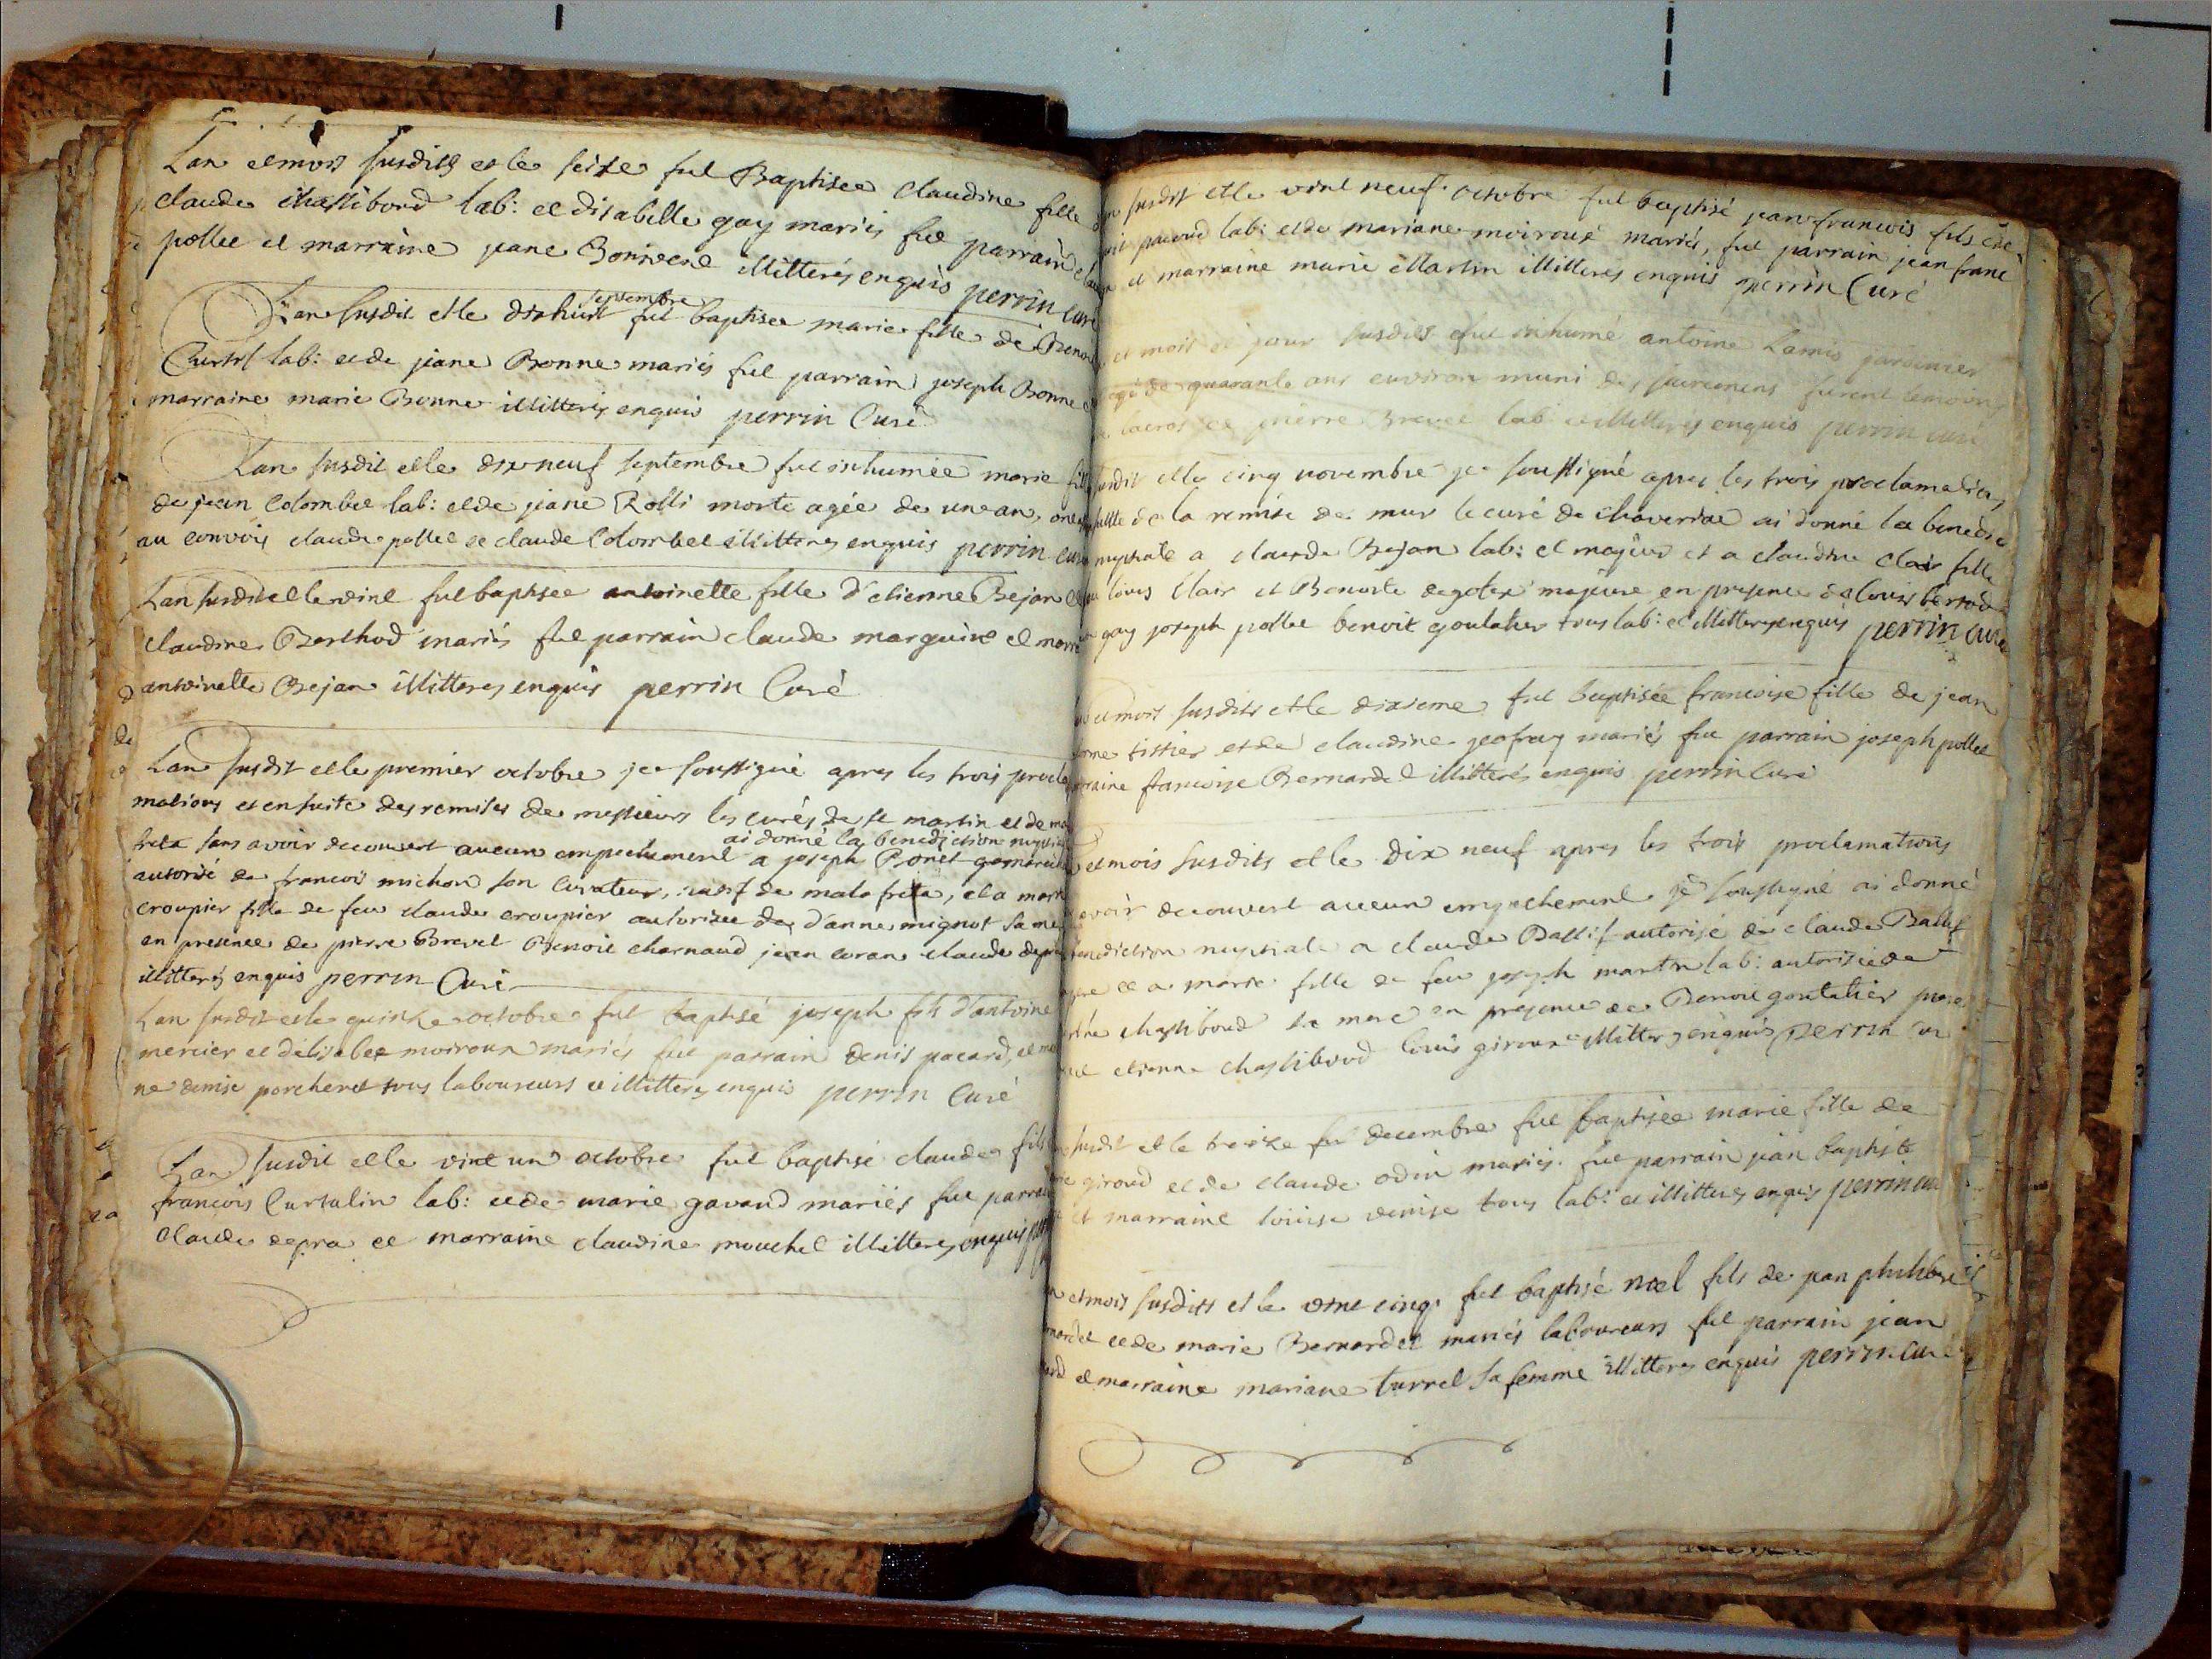 Lan et mois susdits et le seize fut Baptisee claudine fille
claude chassibourd lab: et disabelle gay mariés fut parrain
pollet et marraine jeane Bonivent illitterés enquis perrin curé
Lan susdit et le dixhuit septembre fut baptisee marie fille de Benoit
Curtil lab: et de jeane Bonne mariés fut parrain joseph Bonne et
marraine marie Bonne illitterés enquis perrin Curé
Lan susdit et le dix neuf septembre fut inhumée marie fille
de jean Colombet lab: et de jeane Rolli morte agée de un an,
au convoi claude pollet et claude Colombet illitterés enquis perrin curé
Lan susdit et le vint fut baptisee antoinette fille d'etienne Bejan et
claudine Berthod mariés fut parrain claude marguin et
antoinette Bejan illitterés enquis perrin Curé
Lan susdit et le premier octobre je soussigné apres les trois procla
mations et ensuite des remises de messieurs les curés de st martin et de
freta sans avoir decouvert aucun empechement ai donné la benediction nuptiale a joseph Bonet
autorisé de francois michon son curateur, natif de malafreta, et a
croupier fille de feu claude croupier autorisee de d'anne mignot sa
en presence de pierre Brevet Benoit charnaud jean claude
illitterés enquis perrin Curé
Lan susdit et le quinze octobre fut baptisé joseph fils d'antoine
mercier et d'elisabet moiroux mariés fut parrain denis pacard, et
ne denise porcheret tous laboureurs et illitterés enquis perrin Curé
Lan susdit et le vint un octobre fut baptisé claude fils
francois Curtalin lab: et de marie gavand mariés fut parrain
claude depra et marraine claudine mouchet illitterés enquis
susdit et le vint neuf octobre fut baptisé jean francois fils de
pacoud lab: et de mariane moiroux mariés, fut parrain jean franc
et marraine marie Martin illitterés enquis perrin Curé
et mois et jour susdits fut inhumé antoine Lamis
agé de quarante ans environ muni des sacremens furent
et pierre Brevet lab: et illitterés enquis perrin curé
susdit et le cinq novembre je soussigné apres les trois proclamations
de la remise de mur le curé de ai donné la
nuptiale a claude Bejan lab: et majeur et a claudine clair fille
louis Clair et Benoite majeure en presence de louis
gay joseph pollet benoit goulatier tous lab: et illitterés enquis perrin curé
et mois susdits et le dixieme fut baptisée francoise fille de jean
tissier et de claudine geofray mariés fut parrain joseph pollet
francoise Bernardet illitterés enquis perrin Curé
et mois susdits et le dix neuf apres les trois proclamations
avoir decouvert aucun empechement je soussigné ai donné
benediction nuptiale a claude Ballif autorisé de claude Ballif
et a marie fille de feu joseph martin lab: autorisée de
chassiboud sa mere en presence de Benoit goulatier
etienne chassiboud louis giroux illitterés enquis perrin
susdit et le treize decembre fut baptisée marie fille de
giroud et de claude odin mariés fut parrain jean baptiste
et marraine louise venise tous lab: et illitterés enquis perrin
et mois susdits et le vint cinq fut baptisé noel fils de jean philibert
et de marie Bernardet mariés laboureurs fut parrain jean
et marraine mariane turrel sa femme illitterés enquis perrin curé